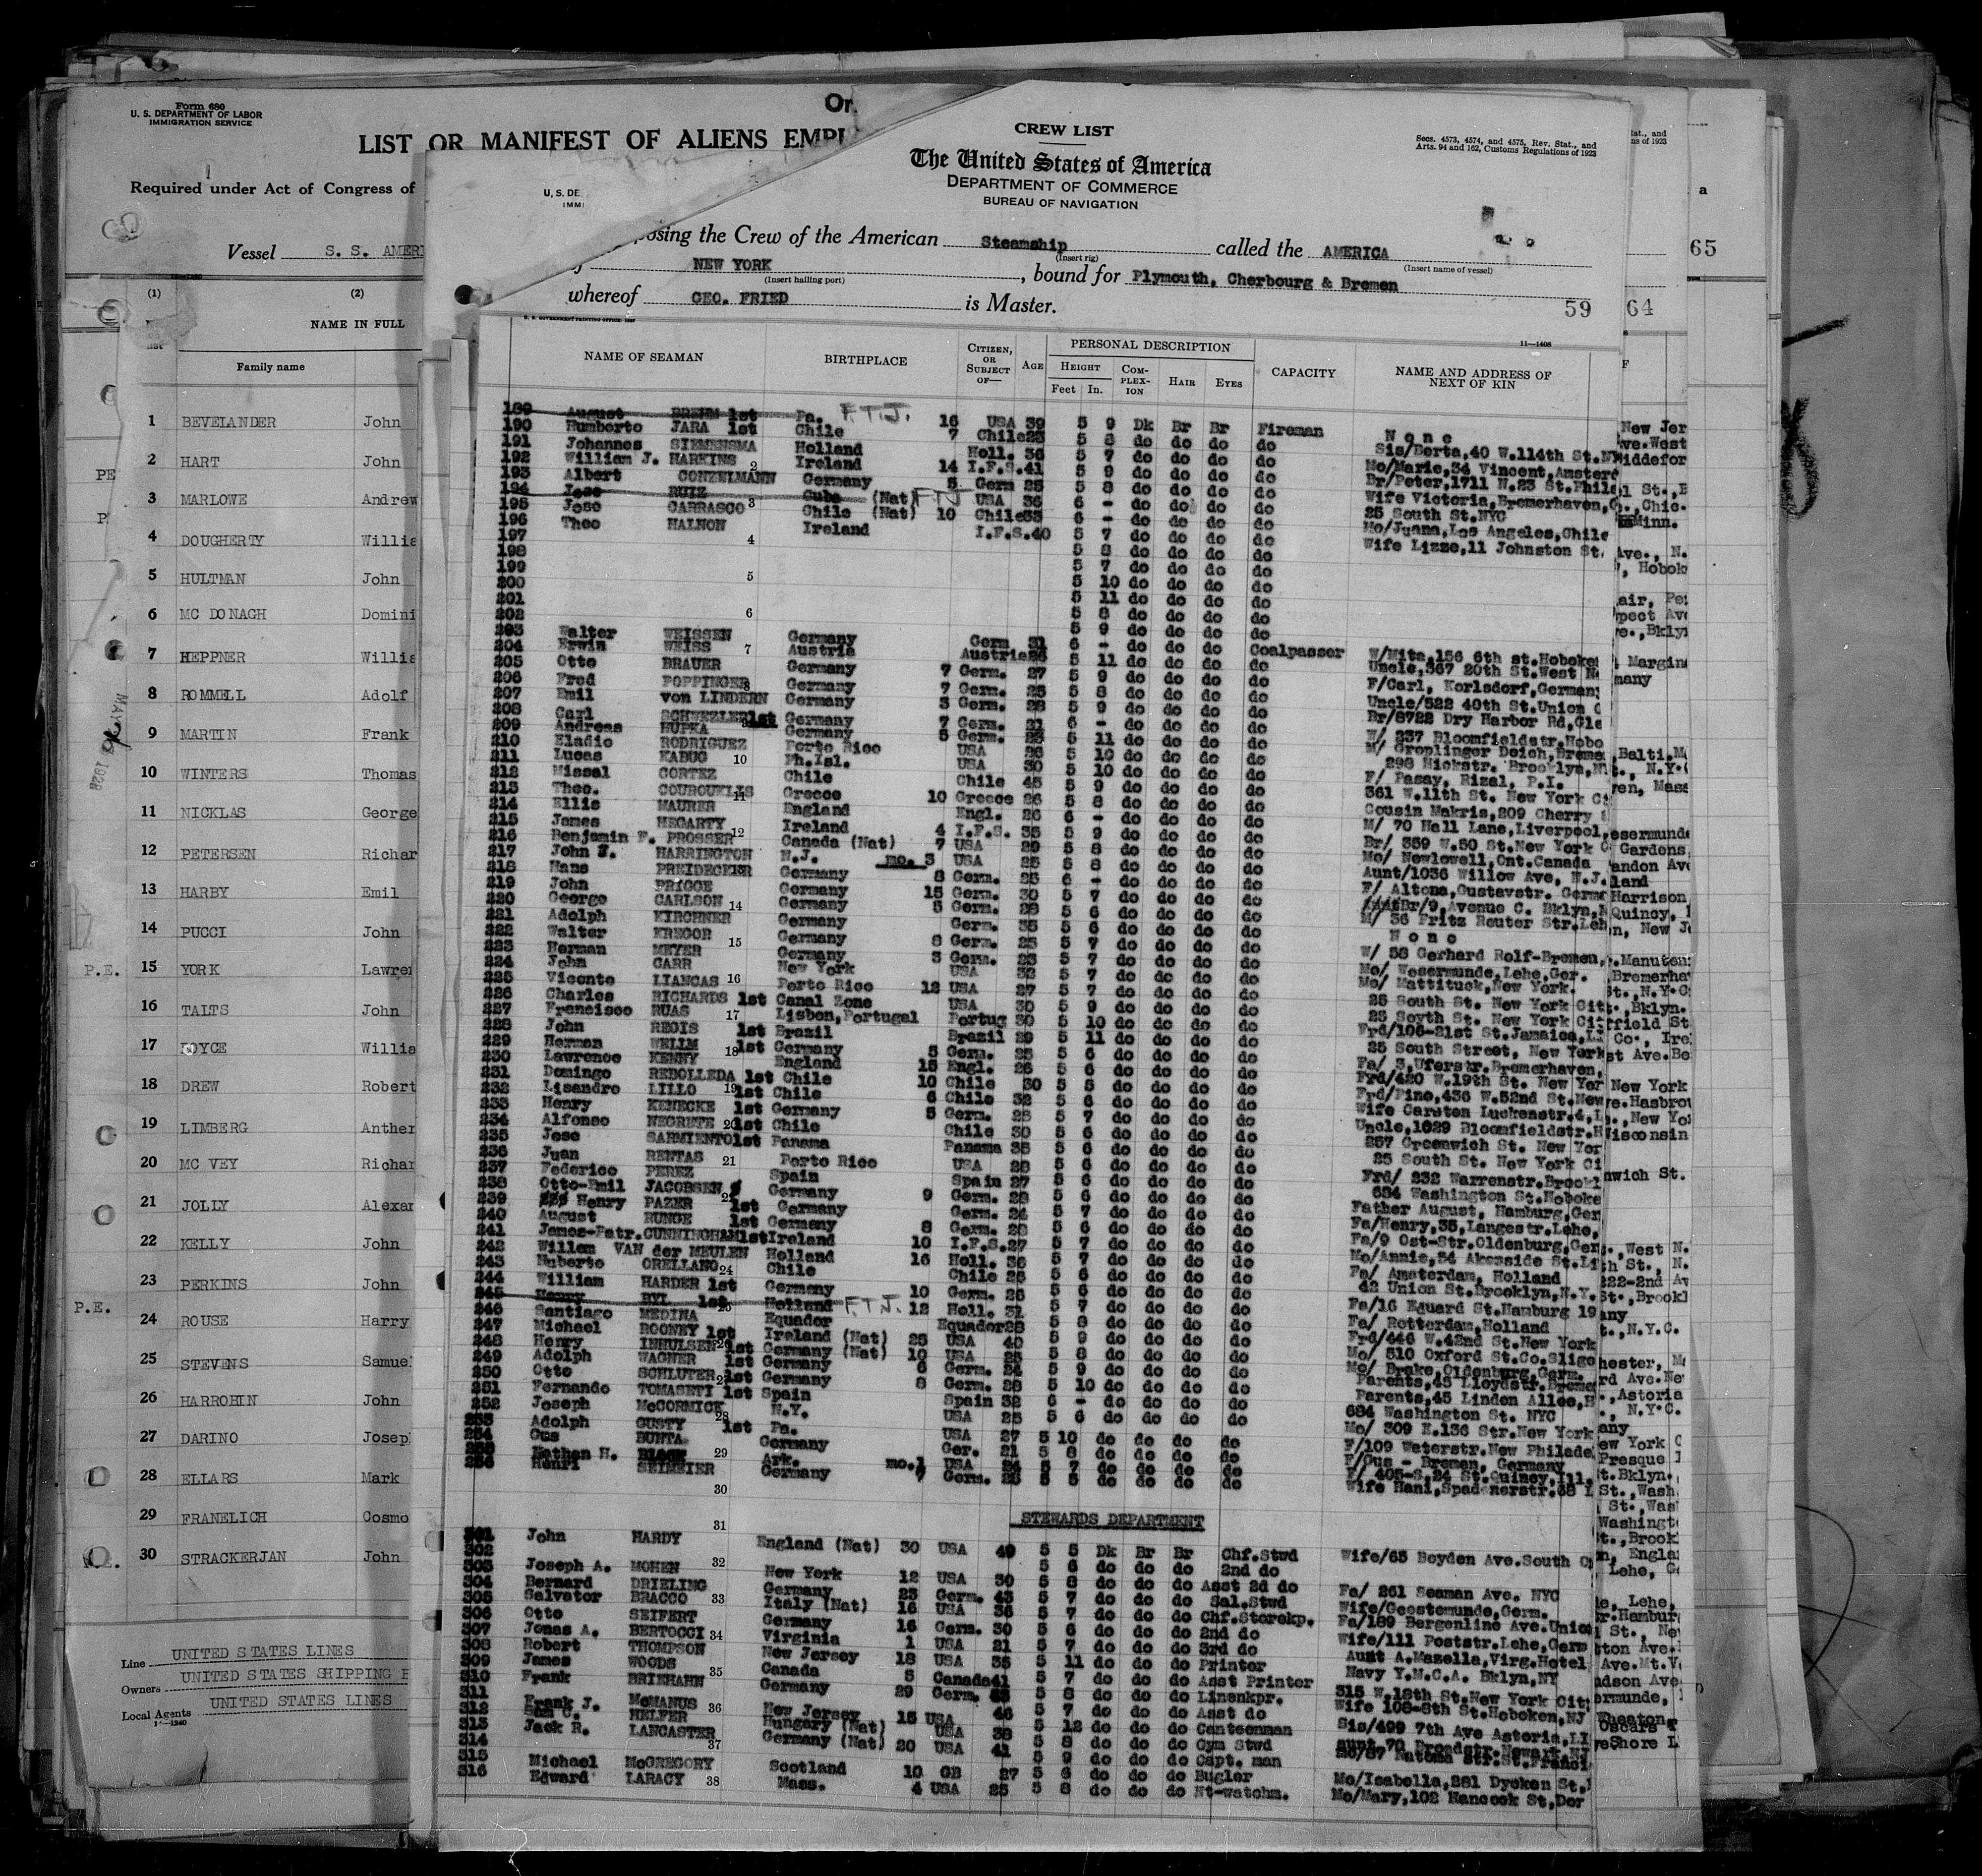 Form 680
U. S. DEPARTMENT OF LABOR
IMMIGRATION SERVICE
LIST OR MANIFEST OF ALIENS EMPL
Required under Act of Congress of
Vessel S. S. AMERI
(1) (2)
NAME IN FULL
Family name
1 BEVELANDER John
2 HART John
3 MARLOWE Andrew
4 DOUGHERTY Willia
5 HULTMAN John
6 MC DONAGH Domini
7 HEPPNER Willia
8 ROMMELL Adolf
9 MARTIN Frank
10 WINTERS Thomas
11 NICKLAS George
12 PETERSEN Richar
13 HARBY Emil
14 PUCCI John
P.E. 15 YORK Lawren
16 TALTS John
17 JOYCE Willia
18 DREW Robert
19 LIMBERG Anther
20 MC VEY Richar
21 JOLLY Alexan
22 KELLY John
23 PERKINS John
P.E. 24 ROUSE Harry
25 STEVENS Samuel
26 HARROHIN John
27 DARINO Joseph
28 ELLARS Mark
29 FRANELICH Cosmo
30 STRACKERJAN John
Line UNITED STATES LINES
Owners UNITED STATES SHIPPING B
Local Agents UNITED STATES LINES
14—1240
CREW LIST
The United States of America
DEPARTMENT OF COMMERCE
BUREAU OF NAVIGATION
Secs. 4573, 4574, and 4575, Rev. Stat., and
Arts. 94 and 162, Customs Regulations of 1923
posing the Crew of the American Steamship called the AMERICA
(Insert rig) (Insert name of vessel)
NEW YORK, bound for Plymouth, Cherbourg & Bremen
(Insert hailing port)
whereof GEO. FRIED is Master.
59 64 65
11—1408
NAME OF SEAMAN BIRTHPLACE CITIZEN, OR SUBJECT OF— AGE PERSONAL DESCRIPTION CAPACITY NAME AND ADDRESS OF NEXT OF KIN
HEIGHT COMPLEXION HAIR EYES
Feet In.
189 August BREHM 1st Pa. F.T.J. 16 USA 39 5 9 Dk Br Br Fireman None
190 Humberto JARA 1st Chile 7 Chile 25 5 8 do do do do Sis/Berta,40 W.114th St.N
191 Johannes SIEMENSMA Holland Holl. 36 5 7 do do do do Mo/Marie,34 Vincent,Amster
192 William J. HARKINS Ireland 14 I.F.S.41 5 9 do do do do Br/Peter,1711 N.23 St.Phil
193 Albert CONZELMANN Germany 5 Germ 25 5 8 do do do do Wife Victoria,Bremerhaven,
194 Jose RUIZ Cuba (Nat) FTJ USA 36 6 - do do do do 25 South St.NYC
195 Jose CARRASCO Chile (Nat) 10 Chile 33 6 - do do do do Mo/Juana,Los Angeles,Chile
196 Theo HALNON Ireland I.F.S.40 5 7 do do do do Wife Lizze,11 Johnston St.
197 5 8 do do do do
198 5 7 do do do do
199 5 10 do do do do
200 5 11 do do do do
201 5 8 do do do do
202 5 9 do do do do
203 Walter WEISSEN Germany Germ 31 6 - do do do Coalpasser W/Mita,156 6th st.Hoboke
204 Erwin WEISS Austria Austria 26 5 11 do do do do Uncle,367 20th St.West N
205 Otto BRAUER Germany 7 Germ. 27 5 9 do do do do F/Carl, Korlsdorf,German
206 Fred POPPINGER Germany 7 Germ. 25 5 8 do do do do Uncle/522 40th St.Union C
207 Emil von LINDERN Germany 3 Germ. 28 5 9 do do do do Br/8722 Dry Harbor Rd,Gle
208 Carl SCHWEZLER 1st Germany 7 Germ. 21 6 - do do do do W/ 237 Bloomfieldstr.Hobo
209 Andreas HUPKA Germany 5 Germ. 5 11 do do do do M/ Groplinger Deich,Breme
210 Eladio RODRIGUEZ Porto Rico USA 26 5 10 do do do do 298 Hickstr. Brooklyn,N
211 Lucas KABUG Ph.Isl. USA 30 5 10 do do do do F/ Pasay, Rizal, P.I.
212 Missal CORTEZ Chile Chile 45 5 9 do do do do 361 W.11th St. New York C
213 Theo. COUROUKLIS Greece 10 Greece 26 5 8 do do do do Cousin Makris,209 Cherry
214 Ellis MAURER England Engl. 26 6 - do do do do M/ 70 Hall Lane,Liverpool,
215 James HEGARTY Ireland 4 I.F.S. 35 5 9 do do do do Br/ 359 W.50 St.New York C
216 Benjamin F. PROSSER Canada (Nat) 7 USA 29 5 8 do do do do Mo/ Newlowell,Ont.Canada
217 John J. HARRINGTON N.J. mo. 3 USA 25 5 8 do do do do Aunt/1036 Willow Ave, N.J.
218 Hans PREIDECKER Germany 8 Germ. 25 6 - do do do do F/ Altona,Gustavstr. Germ
219 John PRIGGE Germany 15 Germ. 30 5 7 do do do do Br/9,Avenue C. Bklyn,N
220 George CARLSON Germany 5 Germ. 28 5 6 do do do do M/ 36 Fritz Reuter Str.Leh
221 Adolph KIRCHNER Germany Germ. 35 5 6 do do do do None
222 Walter KREGOR Germany 8 Germ. 25 5 7 do do do do W/ 58 Gerhard Rolf-Bremen,
223 Herman MEYER Germany 3 Germ. 23 5 7 do do do do Mo/ Wesermunde,Lehe,Ger.
224 John CARR New York USA 32 5 7 do do do do Mo/ Mattituck,New York.
225 Vicente LIANCAS Porto Rico 12 USA 27 5 7 do do do do 25 South St. New York Cit
226 Charles RICHARDS 1st Canal Zone USA 30 5 9 do do do do 25 South St. New York Cit
227 Francisco RUAS Lisbon,Portugal Portug 30 5 10 do do do do Frd/106-21st St.Jamaica,L
228 John REGIS 1st Brazil Brazil 29 5 11 do do do do 25 South Street, New York
229 Herman WELLM 1st Germany 3 Germ. 25 5 6 do do do do Fa/ 3,Uferstr.Bremerhaven,
230 Lawrence KENNY England 15 Engl. 26 5 6 do do do do Frd/420 W.19th St. New Yor
231 Domingo REBOLLEDA 1st Chile 10 Chile 30 5 5 do do do do Frd/Pino,436 W.52nd St.New
232 Lisandro LILLO 1st Chile 6 Chile 32 5 6 do do do do Wife Carsten Luckenstr.4,L
233 Henry KENECKE 1st Germany 5 Germ. 25 5 7 do do do do Uncle,1029 Bloomfieldstr.H
234 Alfonso NEGRETE 1st Chile Chile 30 5 6 do do do do 257 Greenwich St. New Yor
235 Jose SARMIENTO 1st Panama Panama 35 5 6 do do do do 25 South St. New York Ci
236 Juan RENTAS Porto Rico USA 28 5 6 do do do do Frd/ 232 Warrenstr.Brookl
237 Federico PEREZ Spain Spain 27 5 6 do do do do 684 Washington St.Hoboke
238 Otto-Emil JACOBSEN Germany 9 Germ. 28 5 6 do do do do Father August, Hamburg,Ger
239 Henry PAZER 1st Germany Germ. 24 5 7 do do do do Fa/Henry,35,Langestr.Lehe,
240 August RUNGE 1st Germany 8 Germ. 28 5 6 do do do do Fa/9 Ost-Str.Oldenburg,Ger
241 James-Patr.CUNNINGHAM 1st Ireland 10 I.F.S.27 5 7 do do do do Mo/Annie,54 Akenside St.Li
242 Willem VAN der MEULEN Holland 16 Holl. 36 5 7 do do do do Fa/ Amsterdam, Holland
243 Huberto ORELLANO Chile Chile 26 5 6 do do do do 42 Union St.Brooklyn,N.Y.
244 William HARDER 1st Germany 10 Germ. 25 5 6 do do do do Fa/16 Eduard St.Hamburg 19
245 Henry BYL 1st Holland F.T.J. 12 Holl. 31 5 7 do do do do Fa/ Rotterdam,Holland
246 Santiago MEDINA Equador Equador 28 5 8 do do do do Frd/446 W.42nd St.New York
247 Michael ROONEY 1st Ireland (Nat) 25 USA 40 5 9 do do do do Mo/ 510 Oxford St.Co.Sligo
248 Henry INHULSEN 1st Germany (Nat) 10 USA 25 5 8 do do do do Mo/ Brake,Oldenburg,Germ.
249 Adolph WAGNER 1st Germany 6 Germ. 24 5 9 do do do do Parents,45 Lloydstr.Breme
250 Otto SCHLUTER 1st Germany 8 Germ. 28 5 10 do do do do Parents,45 Linden Allee,H
251 Fernando TOMASETI 1st Spain Spain 32 6 - do do do do 684 Washington St. NYC
252 Joseph McCORMICK N.Y. USA 25 5 6 do do do do Mo/ 309 E.136 Str.New York
253 Adolph GUSTY 1st Pa. USA 27 5 10 do do do do F/109 Waterstr.New Philade
254 Gus BUNTA Germany Ger. 21 5 8 do do do do F/Gus - Bremen, Germany
255 Nathan H. Ark. mo.1 USA 24 5 7 do do do do F/ 405-S.24 St.Quincy,Ill.
256 Henri SEIMEIER Germany Germ. 25 5 5 do do do do Wife Hani,Spadenerstr.38
STEWARDS DEPARTMENT
301 John HARDY England (Nat) 30 USA 49 5 5 Dk Br Br Chf.Stwd Wife/65 Boyden Ave.South O
302 5 6 do do do 2nd do
303 Joseph A. MOHEN New York 12 USA 30 5 8 do do do Asst 2d do Fa/ 261 Seaman Ave. NYC
304 Bernard DRIELING Germany 23 Germ. 43 5 7 do do do Sal.Stwd Wife/Geestemunde,Germ.
305 Salvator BRACCO Italy (Nat) 16 USA 36 5 7 do do do Chf.Storekp. Fa/189 Bergenline Ave.Union
306 Otto SEIFERT Germany 16 Germ. 30 5 6 do do do 2nd do Wife/111 Poststr.Lehe,Germ
307 Jonas A. BERTOCCI Virginia 1 USA 21 5 7 do do do 3rd do Aunt A.Mazella,Virg.Hotel
308 Robert THOMPSON New Jersey 18 USA 35 5 11 do do do Printer Navy Y.M.C.A. Bklyn,NY
309 James WOODS Canada 5 Canada 41 5 7 do do do Asst Printer 315 W.18th St.New York Cit
310 Frank BRINHAHN Germany 29 Germ. 5 8 do do do Linenkpr. Wife 108-8th St.Hoboken,NJ
311 Frank J. McMANUS New Jersey 15 USA 46 5 7 do do do Asst do Sis/499 7th Ave Astoria,LI
312 Sam C. HELFER Hungary (Nat) USA 38 5 12 do do do Canteenman Aunt,70 Broadstr.Newark,NJ
313 Jack R. LANCASTER Germany (Nat) 20 USA 41 5 8 do do do Gym Stwd Mo/87 Natoma Str.St.Franci
314 5 9 do do do Capt. man
315 Michael McGREGORY Scotland 10 GB 27 5 6 do do do Bugler Mo/Isabella,281 Dycken St,
316 Edward LARACY Mass. 4 USA 25 5 8 do do do Nt-watchm. Mo/Mary,102 Hancock St,Dor